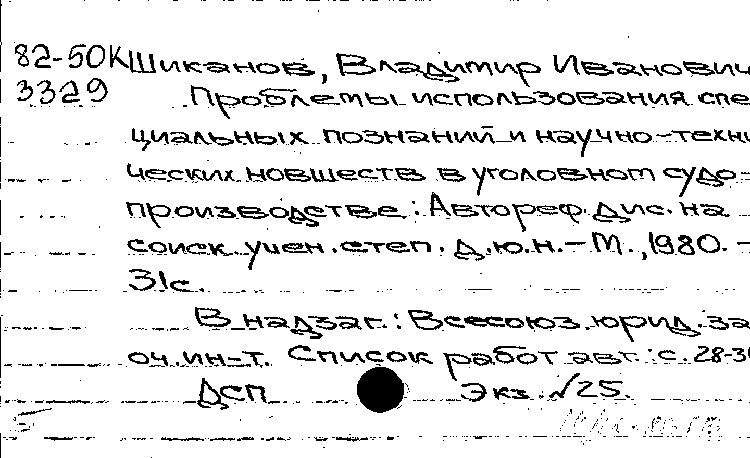 82-50К Шиканов, Владимир Иванович
3329 Проблемы использования спе-
циальных познаний и научно-техни
ческих новшеств в уголовном судо-
производстве: Автореф. дис. на
соиск. учен. степ. д.ю.н. – М., 1980. –
31с.
В надзаг.: Всесоюз. юрид. за
оч. ин-т. Список работ авт.: с. 28-3
ДСП Экз. №25.